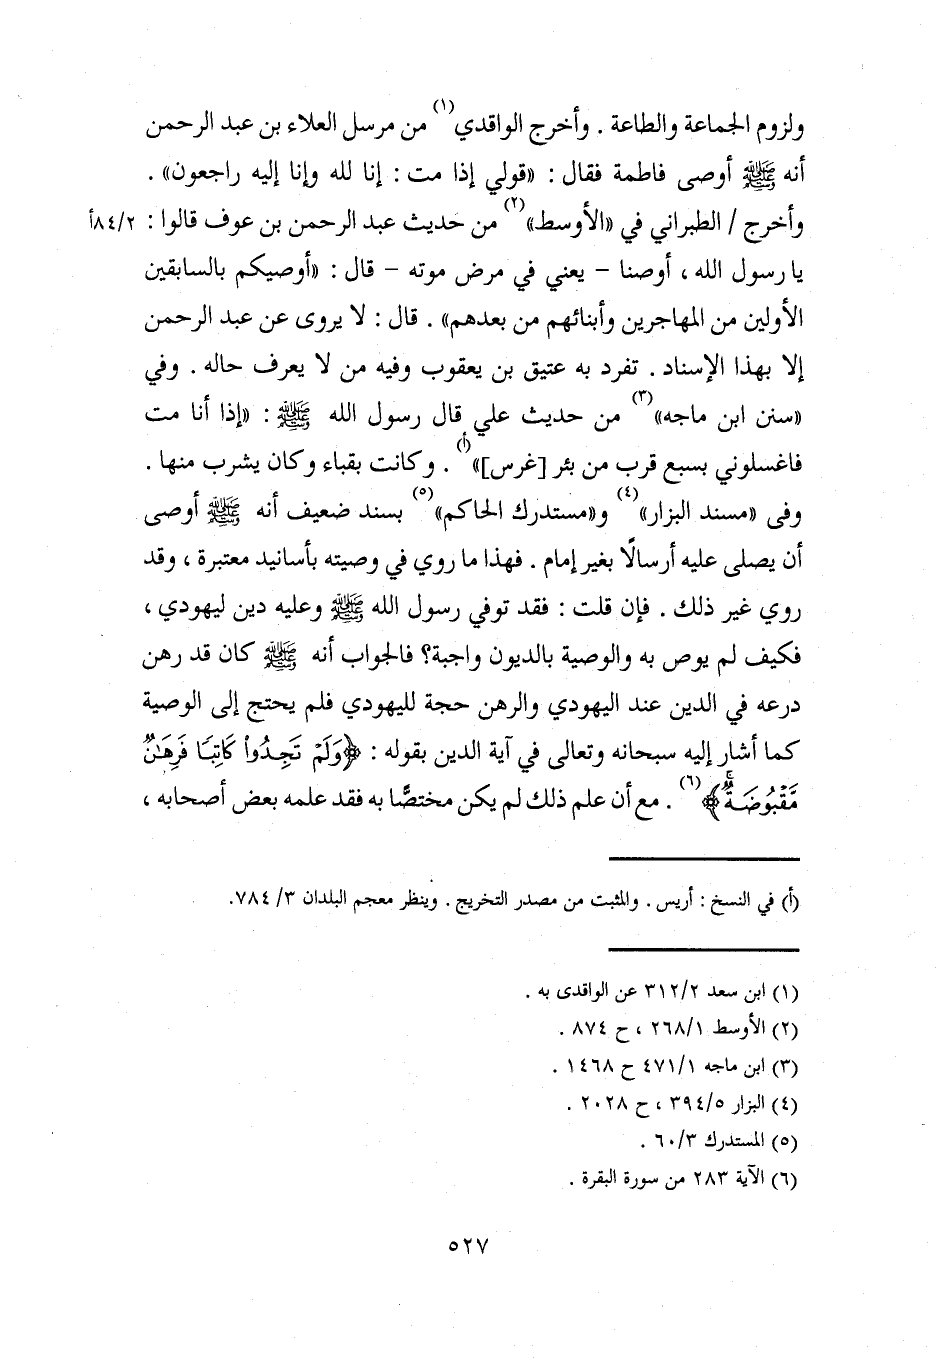 ولزوم الجماعة والطاعة . وأخرج الواقدي(١) من مرسل العلاء بن عبد الرحمن
أنه ﷺ أوصى فاطمة فقال : «قولي إذا مت : إنا لله وإنا إليه راجعون» .
وأخرج / الطبراني في «الأوسط»(٢) من حديث عبد الرحمن بن عوف قالوا : ٨٤/٢أ
يا رسول الله ، أوصنا – يعني في مرض موته – قال : «أوصيكم بالسابقين
الأولين من المهاجرين وأبنائهم من بعدهم» . قال : لا يروى عن عبد الرحمن
إلا بهذا الإسناد . تفرد به عتيق بن يعقوب وفيه من لا يعرف حاله . وفي
«سنن ابن ماجه»(٣) من حديث علي قال رسول الله ﷺ : «إذا أنا مت
فاغسلوني بسبع قرب من بئر [غرس]»(أ) . وكانت بقباء وكان يشرب منها .
وفى «مسند البزار»(٤) و«مستدرك الحاكم»(٥) بسند ضعيف أنه ﷺ أوصى
أن يصلى عليه أرسالًا بغير إمام . فهذا ما روي في وصيته بأسانيد معتبرة ، وقد
روي غير ذلك . فإن قلت : فقد توفي رسول الله ﷺ وعليه دين ليهودي ،
فكيف لم يوص به والوصية بالديون واجبة؟ فالجواب أنه ﷺ كان قد رهن
درعه في الدين عند اليهودي والرهن حجة لليهودي فلم يحتج إلى الوصية
كما أشار إليه سبحانه وتعالى في آية الدين بقوله : ﴿وَلَمْ تَجِدُواْ كَاتِبًا فَرِهَٰنٌ
مَّقْبُوضَةٌۖ﴾(٦) . مع أن علم ذلك لم يكن مختصًّا به فقد علمه بعض أصحابه ،
(أ) في النسخ : أريس . والمثبت من مصدر التخريج . وينظر معجم البلدان ٣/ ٧٨٤.
(١) ابن سعد ٣١٢/٢ عن الواقدى به .
(٢) الأوسط ٢٦٨/١ ، ح ٨٧٤ .
(٣) ابن ماجه ٤٧١/١ ح ١٤٦٨ .
(٤) البزار ٣٩٤/٥ ، ح ٢٠٢٨ .
(٥) المستدرك ٦٠/٣ .
(٦) الآية ٢٨٣ من سورة البقرة .
٥٢٧